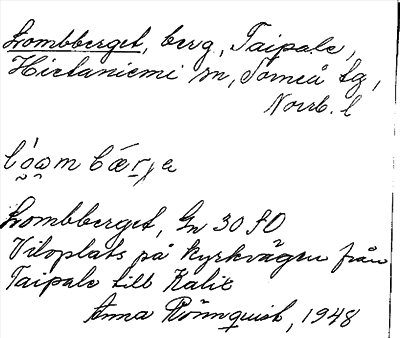 Lombberget, berg, Taipale,
Hietaniemi sn, Torneå tg,
Norrb. l
Lombberget, Gr 30 f D
Viloplats på kyrkvägen från
Taipale till Kalix
Anna Rönnquist, 1948